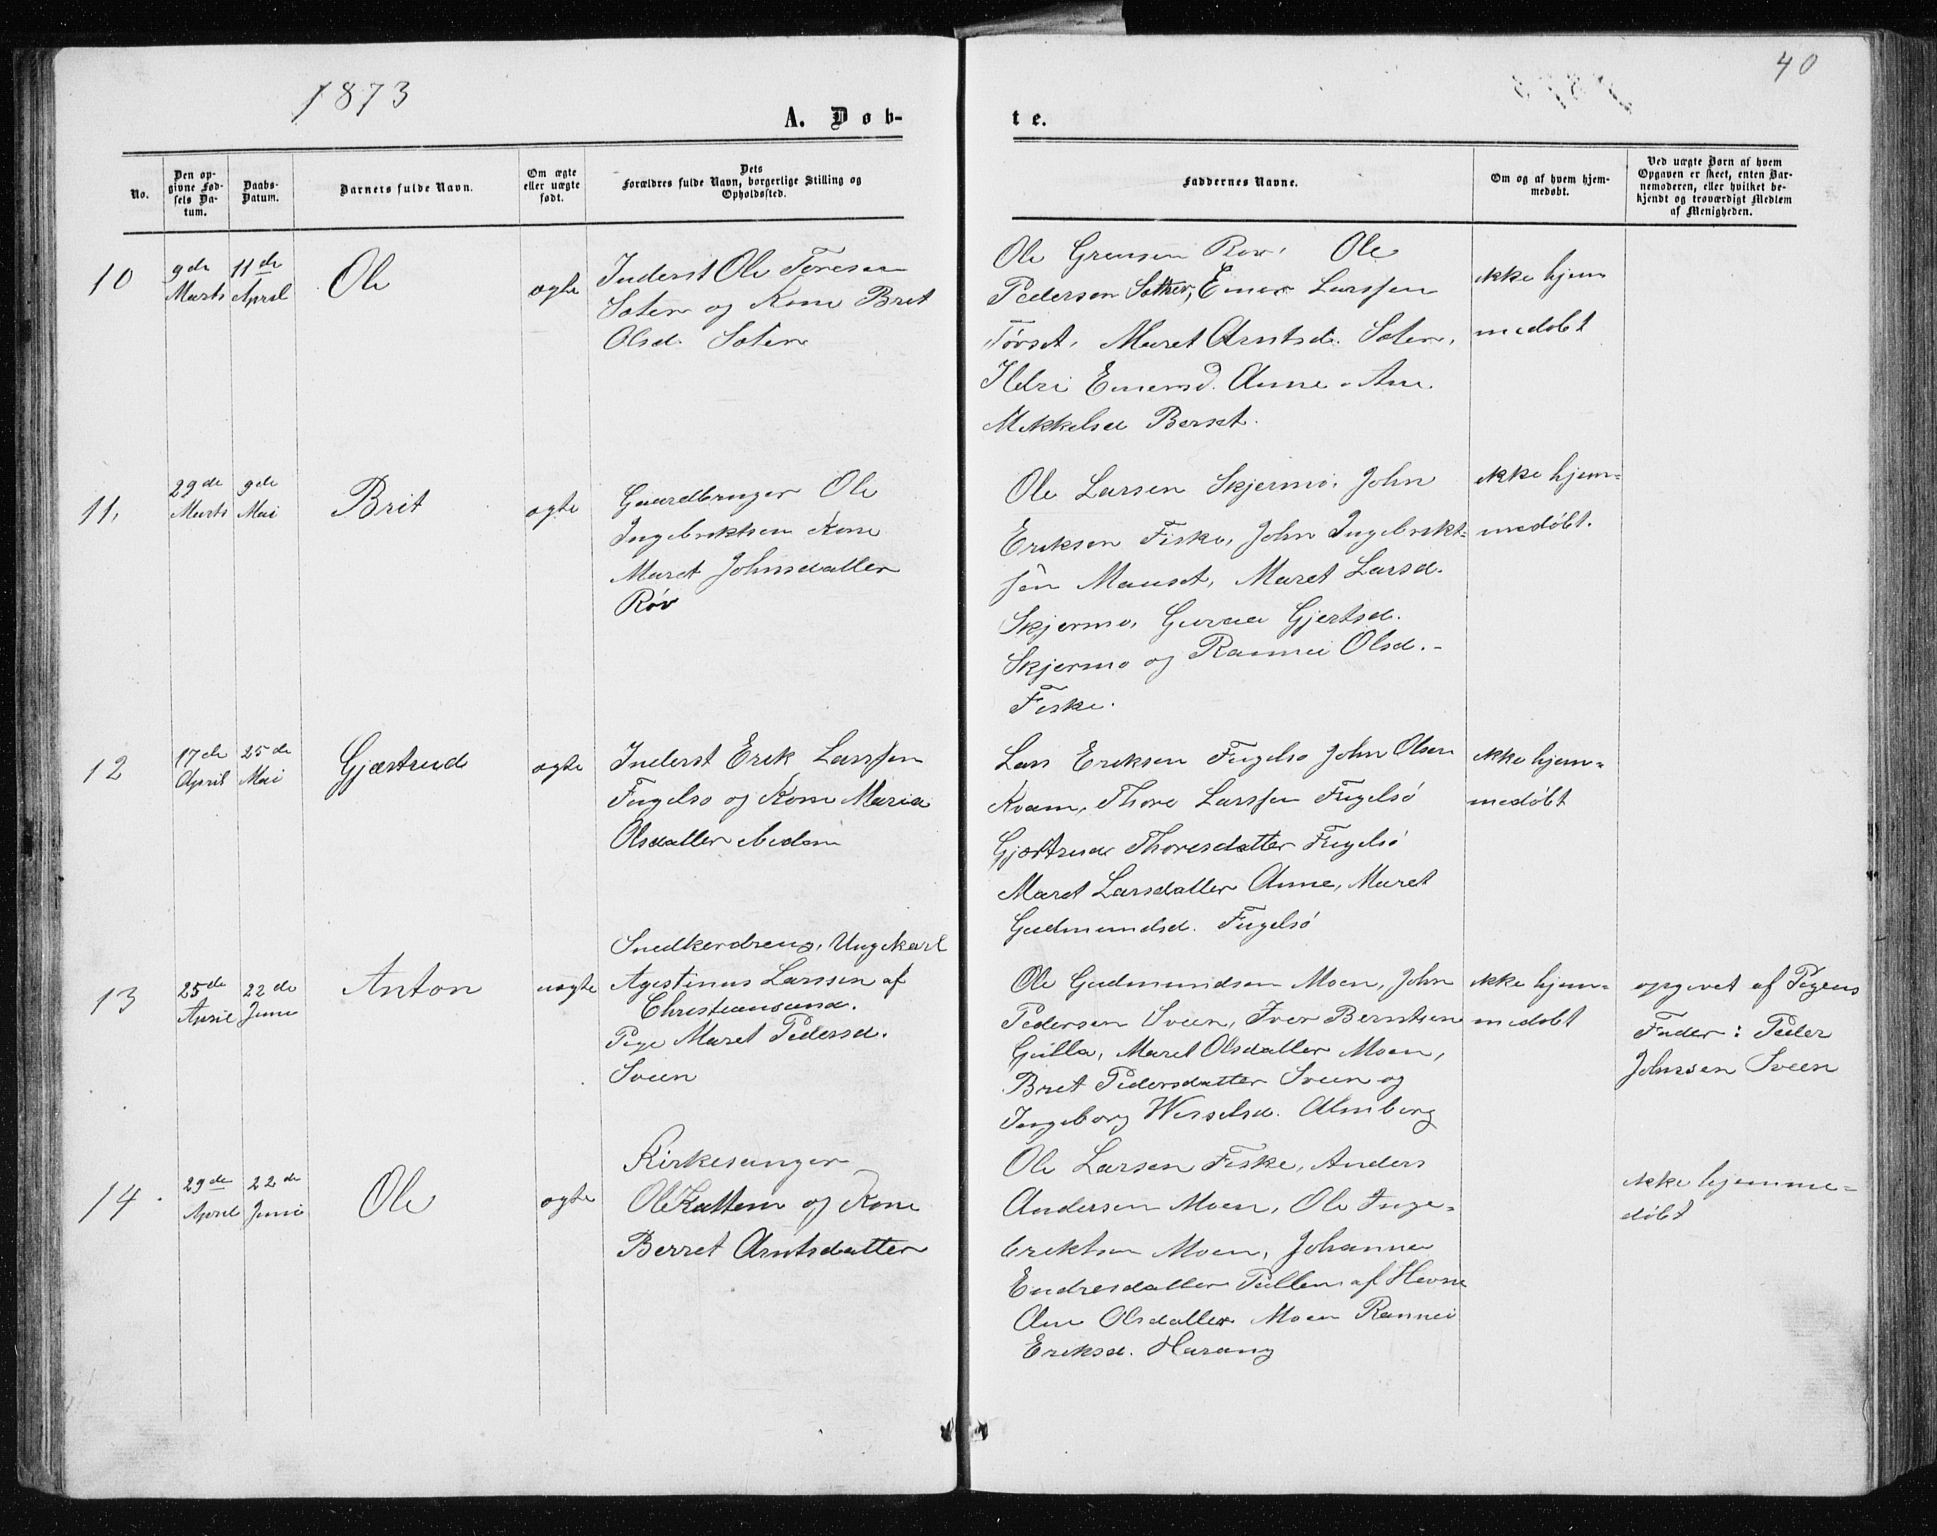 1873
40
A. Døb-
te.
No.
Den op-
givne Fød-
sels Da-
tum.
Daabs-
Datum.
Barnets fulde Navn.
Om ægte
eller uægte
født.
Dets
Forældres fulde Navn, borgerlige Stilling og
Opholdssted.
Faddernes Navne.
Om og af hvem hjem-
medøbt.
Ved uægte Børn af hvem
Opgaven er skeet, enten Bar-
nemoderen, eller hvilket be-
kjendt og troværdigt Medlem
af Menigheden.
10
9de
Marts
11de
April
Ole
ægte
Inderst Ole Toresen
Sæter og Kone Bret
Olsd. Sæter
Ole Røv. Ole
Pedersen Sæther, Einer Larssen
Tørset, Maret Arntsd. Sæter,
Ildri Einersd. Aune. Ane
Mikkelsd Børset.
ikke hjem
medøbt
11.
29de
Marts
9de
Mai
Brit
ægte
Gaardbruger Ole
Ingebriktsen Kone
Maret Johnsdatter
Røv
Ole Larsen Skjermo, John
Eriksen Fiske, John Ingebrikt-
sen Mauset, Maret Larsd.
Skjermo, Guraa Gjertsd.
Skjermo og Rannei Olsd.-
Fiske.
ikke hjem-
medøbt.
12
17de
April
25de
Mai
Gjærtrud
ægte
Inderst Erik Larssen
Fugelsø og Kone Maria
Olsdatter ibidem
Lars Eriksen Fugelsø John Olsen
Kvam, Thore Larssen Fugelsø
Gjærtrud Thoresdatter Fugelsø
Maret Larsdatter Aune, Maret
Gudmundsd. Fugelsø
ikke hjem-
medøbt
13
25de
April
22de
Juni
Anton
uægte
Snedkerdreng, Ungekarl
Agestinus Larssen af
Christiansund.
Pige Maret Pedersd.
Sveen
Ole Gudmundsen Moen, John
Pedersen Sveen, Iver Berntsen
Gulla, Maret Olsdatter Moen,
Bret Pedersdatter Sveen og
Ingeborg Wesselsd. Almberg
ikke hjem-
medøbt
opgivet af Pigens
Fader: Peder
Johnsen Sveen
14.
29de
April
22de
Juni
Ole
ægte
Kirkesanger
Ole Kattem og Kone
Berret Arntsdatter
Ole Larsen Fiske, Anders
Andersen Moen, Ole Inge-
briktsen Moen, Johanna
Endresdatter af Hevne
Ane Olsdatter Moen Rannei
Eriksd. Harang
ikke hjemme-
døbt